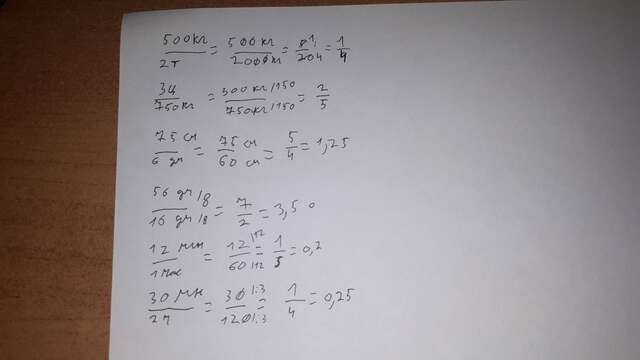 500кг/2т = 500кг/2000кг = 5/20 = 1/4
3ц/750кг = 300кг/150 / 750кг/150 = 2/5
75 см/6 дм = 75 см/60 см = 5/4 = 1,25
56 дм/8 / 16 дм/8 = 7/2 = 3,5
12 мин/1 час = 12/12 / 60/12 = 1/5 = 0,2
30 мин/2ч = 30 1:3/120 1:3 = 1/4 = 0,25